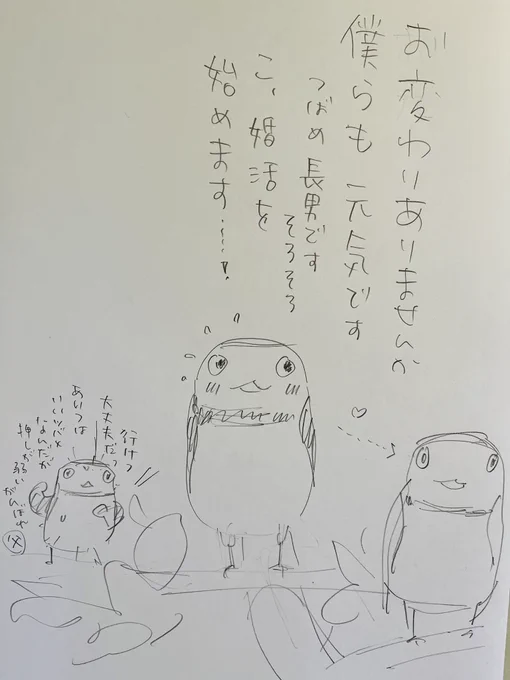 お変わりありませんか
僕らも元気です
つばめ長男です
そろそろ
こ、婚活を
始めます……!
行けっ
大丈夫だっ
あいつは
いいツバメ
なんだが
押しが弱い
がんばれ
父